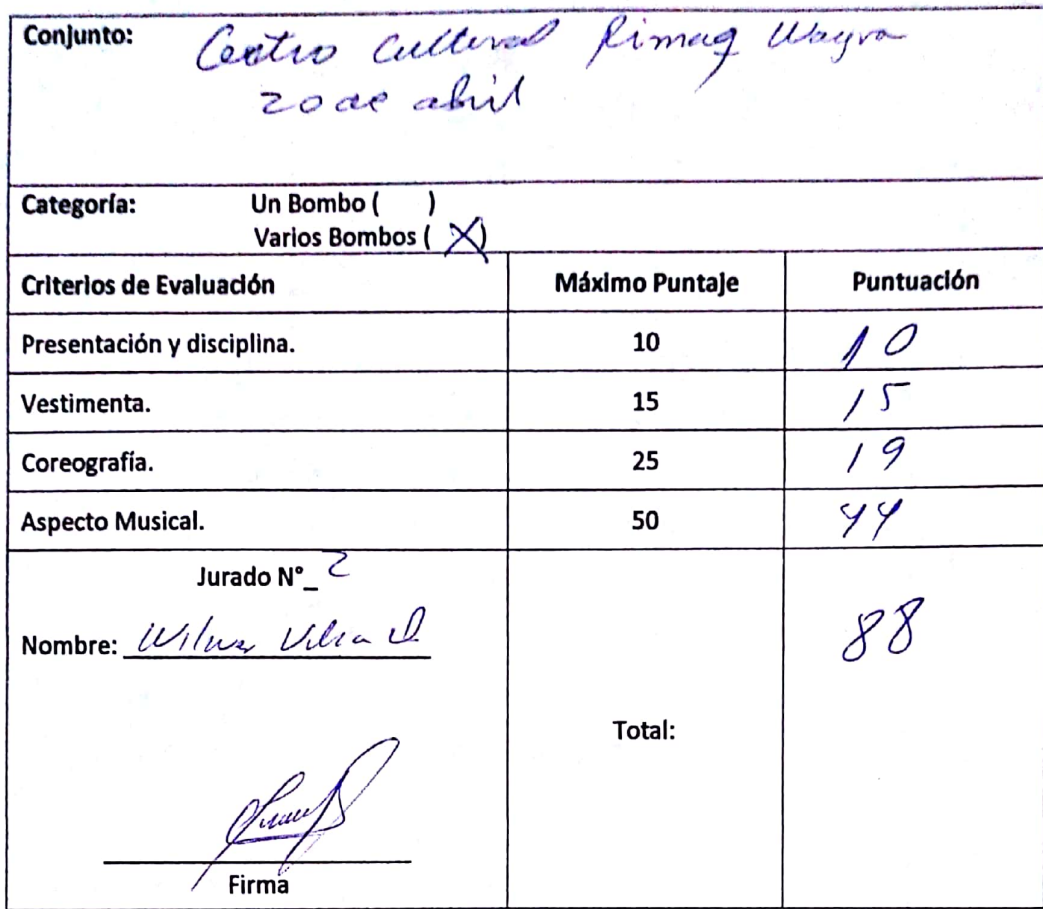 Conjunto: Centro Cultural Rimaq Wayra
20 de abril
Categoría: Un Bombo ( )
Varios Bombos ( X )
Criterios de Evaluación Máximo Puntaje Puntuación
Presentación y disciplina. 10 10
Vestimenta. 15 15
Coreografía. 25 19
Aspecto Musical. 50 44
Jurado N°_ 2
Nombre: Wilmer
88
Total:
Firma